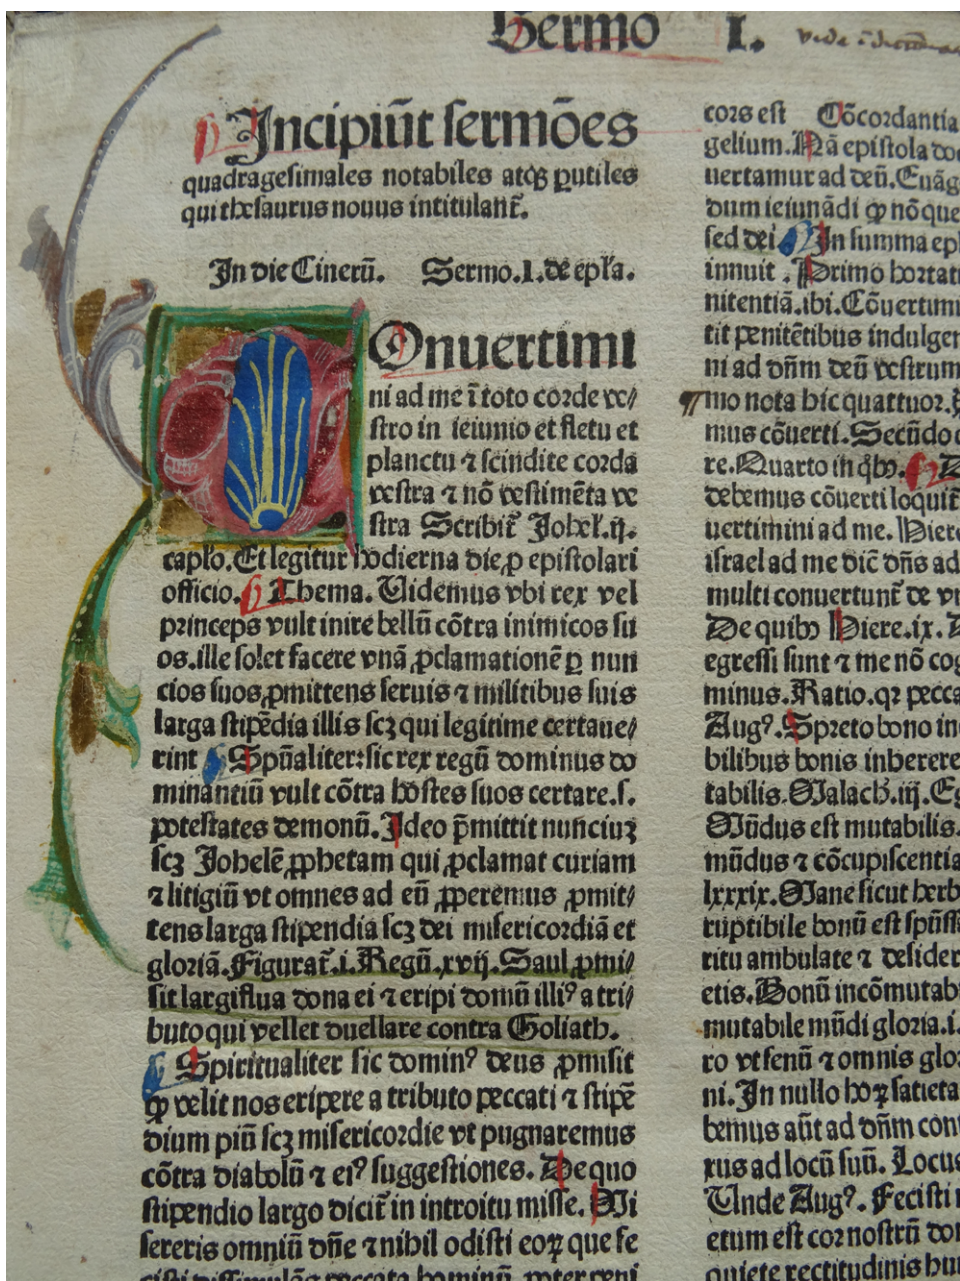 Sermo I.
Incipiūt sermōes
quadragesimales notabiles atqꝫ ꝑutiles
qui thesaurus nouus intitulant᷑.
In die Cinerū. Sermo.1.de epła.
Onuertimi
ni ad me ī toto corde ve/
stro in ieiunio et fletu et
planctu ⁊ scindite corda
vestra ⁊ nō vestimēta ve
stra Scribit᷑ Johel̕.ij.
capło. Et legitur hodierna die ꝓ epistolari
officio. Thema. Uidemus vbi rex vel
princeps vult inire bellū cōtra inimicos su
os. ille solet facere vnā ꝓclamationē ꝑ nun
cios suos ꝓmittens seruis ⁊ militibus suis
larga stipēdia illis scꝫ qui legitime certaue/
rint Spūaliter: sic rex regū dominus do
minantiū vult cōtra hostes suos certare.s.
potestates demonū. Ideo p̄mittit nunciuꝫ
scꝫ Johelē ꝓphetam qui ꝓclamat curiam
⁊ litigiū vt omnes ad eū ꝓperemus ꝓmit/
tens larga stipendia scꝫ dei misericordiā et
gloriā. Figurat᷑.i.Regū.xvij. Saul ꝓmi/
sit largiflua dona ei ⁊ eripi domū illiꝰ a tri/
buto qui vellet duellare contra Goliath.
Spiritualiter sic dominꝰ deus ꝓmisit
ꝙ velit nos eripere a tributo peccati ⁊ stipē
dium piū scꝫ misericordie vt pugnaremus
cōtra diabolū ⁊ eiꝰ suggestiones. De quo
stipendio largo dicit᷑ in introitu misse. Mi
sereris omniū dn̄e ⁊ nihil odisti eoꝝ que fe
cisti dissimulās peccata hominū ꝓpter peni
cors est Cōcordantia
gelium. Nā epistola do
uertamur ad deū. Euāg
dum ieiunādi ꝙ nō que
sed dei In summa ep
innuit . Primo hortat
nitentiā.ibi. Cōuertimi
tit penitētibus indulgen
ni ad dn̄m deū vestrum
mo nota hic quattuor.
mus cōuerti. Secūdo
re. Quarto in q̇bꝰ.
debemus cōuerti loquit᷑
uertimini ad me. Hiere
israel ad me dic̄ dn̄s ad
multi conuertunt᷑ de
De quibꝰ Hiere.ix.
egressi sunt ⁊ me nō cog
minus. Ratio. qꝛ pecca
Augꝰ. Spreto bono in
bilibus bonis inherere
tabilis. Malach̄.iij. Eg
Mūdus est mutabilis.
mūdus ⁊ cōcupiscentia
lxxxix. Mane sicut herb
ruptibile bonū est spūss
ritu ambulate ⁊ desider
etis. Bonū incōmutab
mutabile mūdi gloria.i.
ro vt fenū ⁊ omnis glor
ni. In nullo hoꝝ satieta
bemus aūt ad dn̄m con
xus ad locū suū. Locus
Unde Augꝰ. Fecisti
etum est cor nostrū do
quiete rectitudinis hu